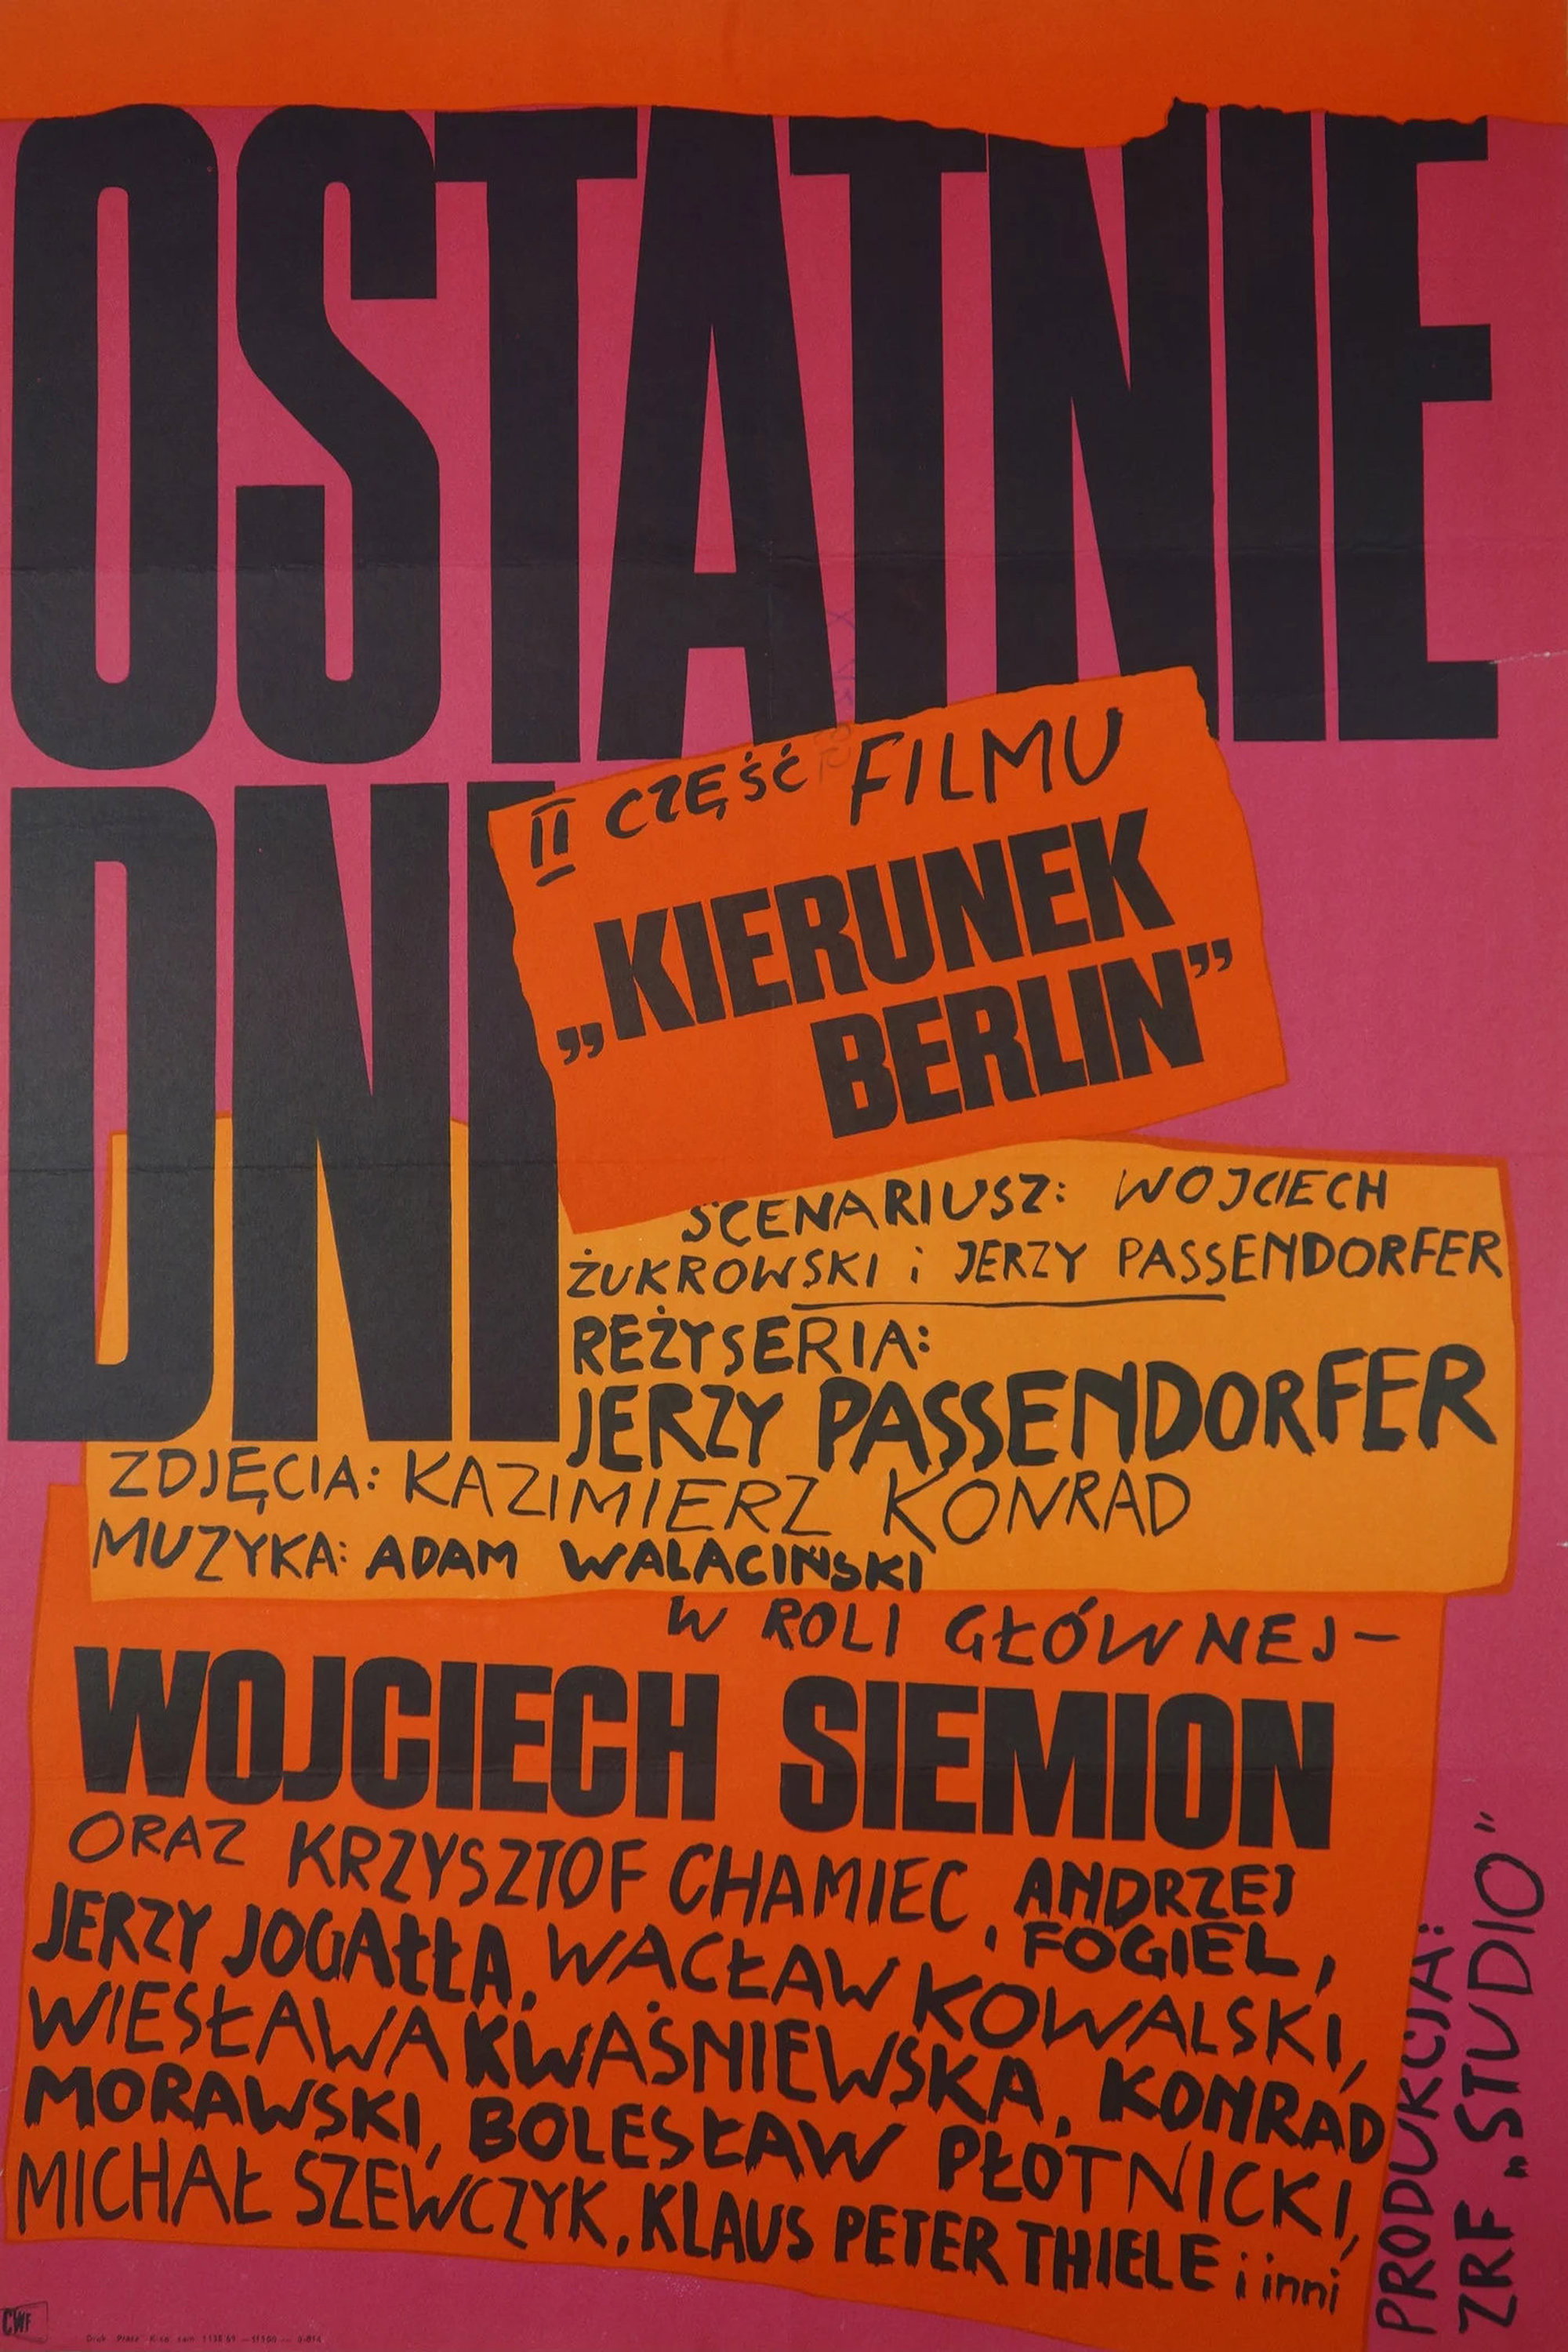 OSTATNIE
DNI
II CZĘŚĆ FILMU
„KIERUNEK
BERLIN”
SCENARIUSZ: WOJCIECH
ŻUKROWSKI i JERZY PASSENDORFER
REŻYSERIA:
JERZY PASSENDORFER
ZDJĘCIA: KAZIMIERZ KONRAD
MUZYKA: ADAM WALACIŃSKI
W ROLI GŁÓWNEJ—
WOJCIECH SIEMION
ORAZ KRZYSZTOF CHAMIEC, ANDRZEJ
FOGIEL,
JERZY JOGAŁŁA, WACŁAW KOWALSKI,
WIESŁAWA KWAŚNIEWSKA, KONRAD
MORAWSKI, BOLESŁAW PŁOTNICKI,
MICHAŁ SZEWCZYK, KLAUS PETER THIELE i inni
PRODUKCJA:
ZRF „STUDIO”
CWF